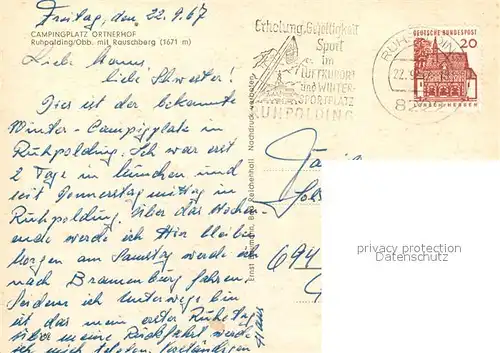 Freitag, den 22.9.67
CAMPINGPLATZ ORTNERHOF
Ruhpolding/Obb. mit Rauschberg (1671 m)
Liebe
liebe Schwester!
Hier ist der bekannte
Winter-Campingplatz in
Ruhpolding. Ich war erst
2 Tage in München und
seit Donnerstag mittag in
Ruhpolding. Über das Wochen
ende werde ich hier bleiben
Morgen am Samstag werde ich
nach fahren.
Seidem ich Unterwegs bin
ist das mein erster Ruhetag
über meine Rückfahrt werde
ich mich telefon. verständigen
Hans
Erholung, Geselligkeit
Sport
im
LUFTKURORT
und WINTER-
SPORTPLATZ
RUHPOLDING
RUHPOLDING
22.9.
82
DEUTSCHE BUNDESPOST
20
LORSCH/HESSEN
Ernst Baumann, Bad Reichenhall Nachdruck verboten
694
privacy protection
Datenschutz